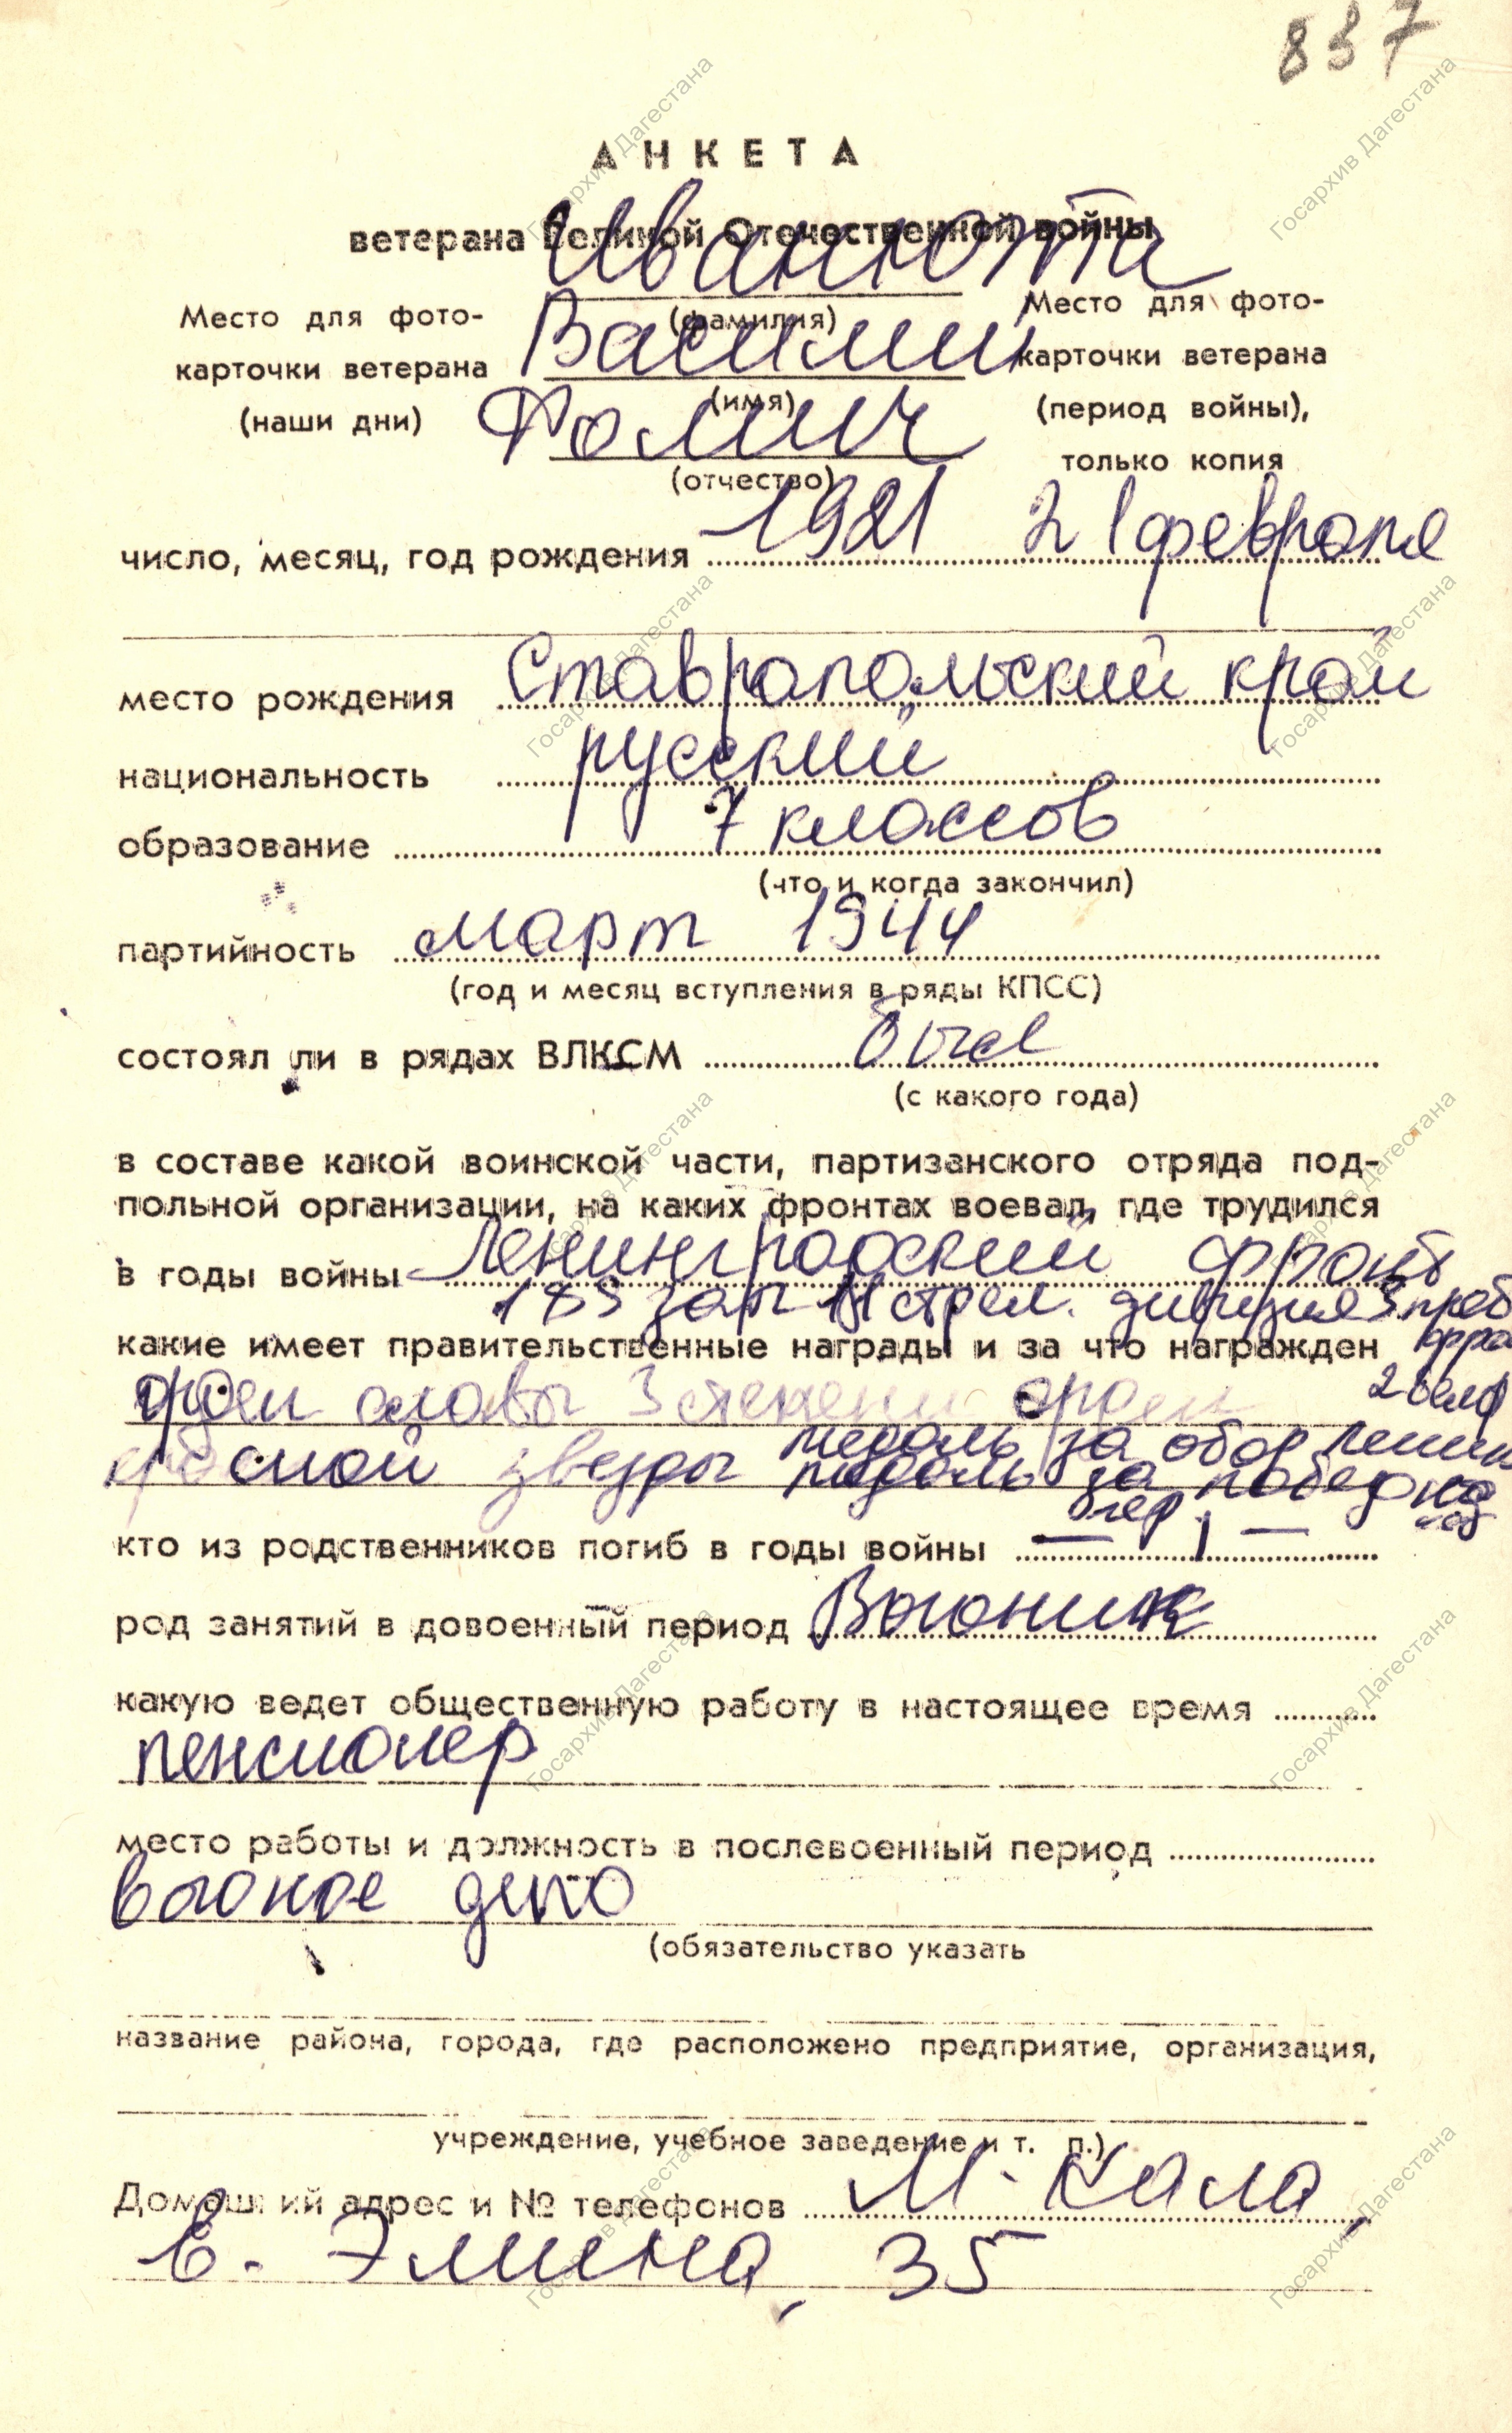 837
АНКЕТА
ветерана Великой Отечественной войны
Иванюта
Место для фото-
карточки ветерана
(наши дни)
(фамилия)
Василий
(имя)
Фомич
(отчество)
Место для фото-
карточки ветерана
(период войны),
только копия
число, месяц, год рождения 1921 21 февраля
место рождения Ставрапольский край
национальность русский
образование 7 классов
(что и когда закончил)
партийность март 1944
(год и месяц вступления в ряды КПСС)
состоял ли в рядах ВЛКСМ был
(с какого года)
в составе какой воинской части, партизанского отряда под-
польной организации, на каких фронтах воевал, где трудился
в годы войны Ленинградский фронт
стрел. дивизия
какие имеет правительственные награды и за что награжден
орден славы 3 степени орден
красной звезды медаль за обор Ленин
медаль за победу над
гер
кто из родственников погиб в годы войны — —
род занятий в довоенный период Вагоник
какую ведет общественную работу в настоящее время
пенсионер
место работы и должность в послевоенный период
вагоное депо
(обязательство указать
название района, города, где расположено предприятие, организация,
учреждение, учебное заведение и т. п.)
Домашний адрес и № телефонов М-Кала,
Э. Эмина, 35
Госархив Дагестана